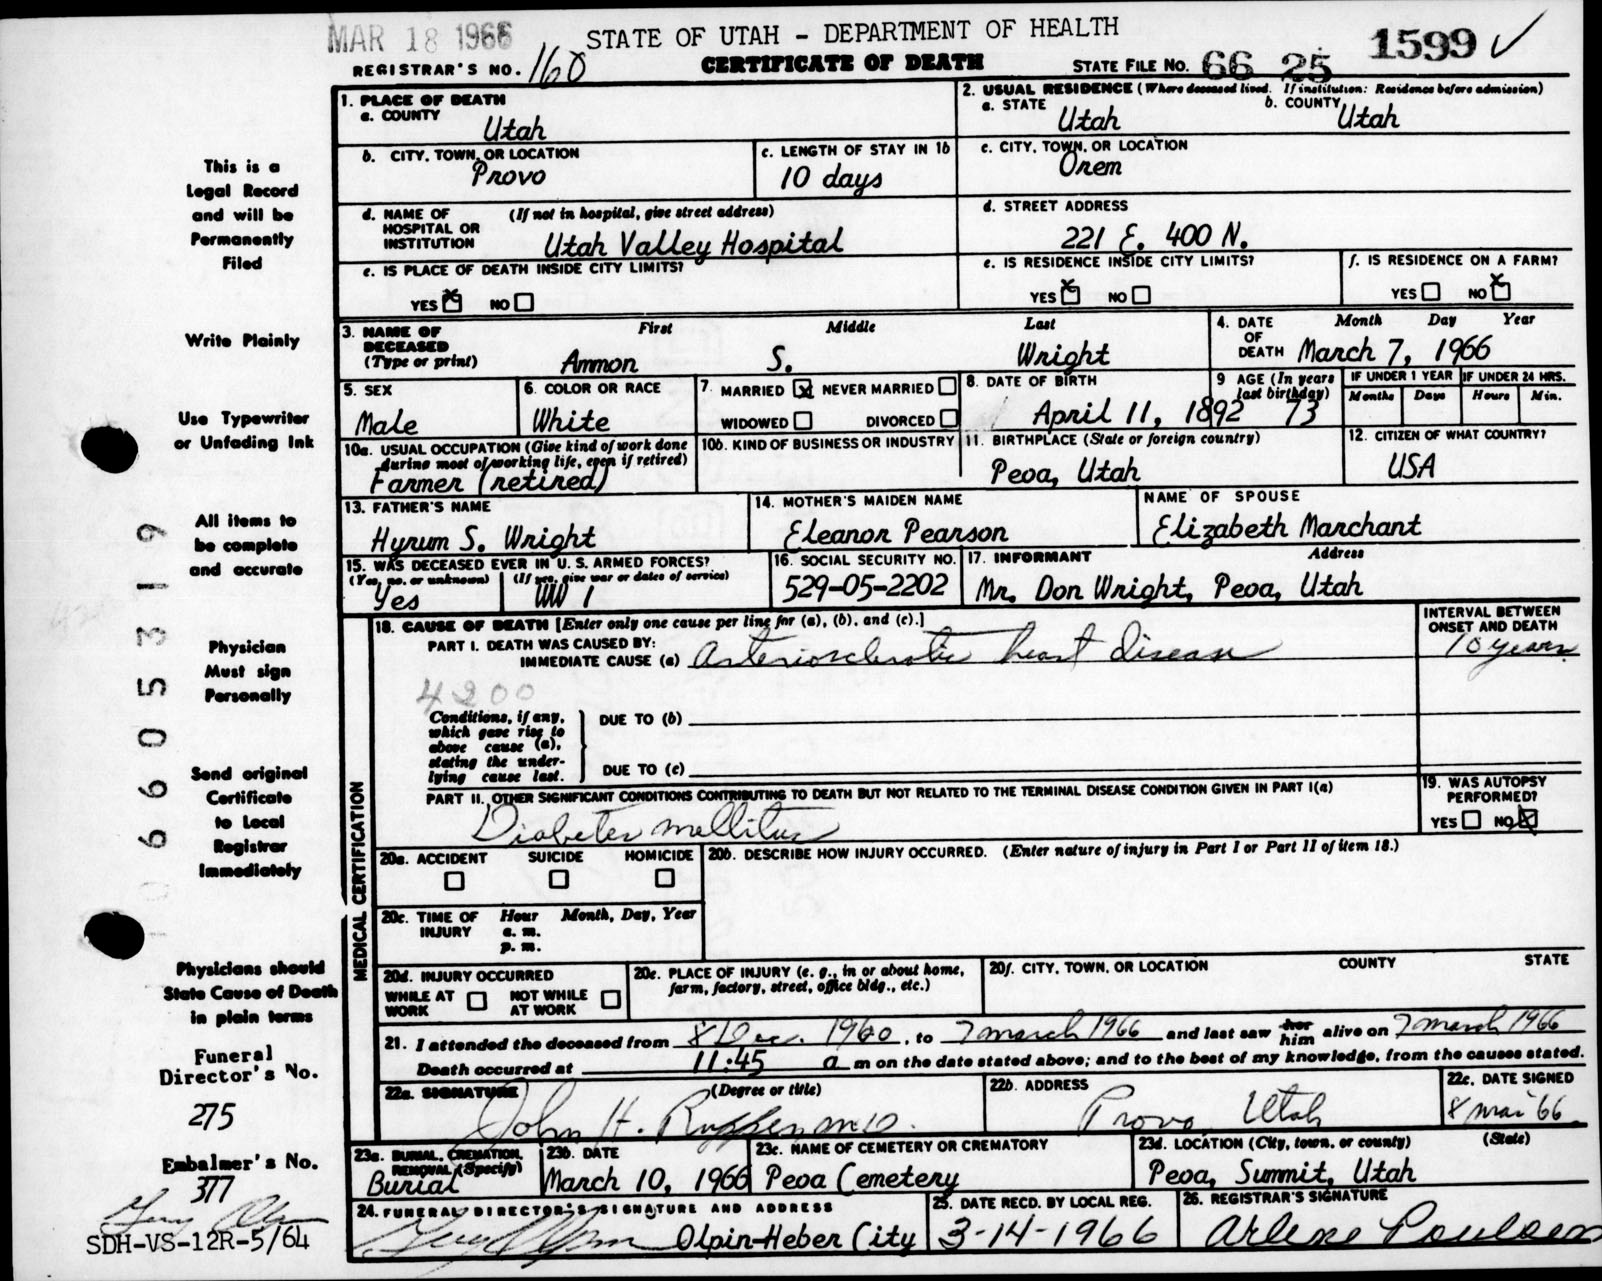 MAR 18 1966
STATE OF UTAH - DEPARTMENT OF HEALTH
1599 ✓
REGISTRAR'S NO. 160
CERTIFICATE OF DEATH
STATE FILE NO. 66 25
1. PLACE OF DEATH
a. COUNTY
Utah
2. USUAL RESIDENCE (Where deceased lived. If institution: Residence before admission)
a. STATE
Utah
b. COUNTY
Utah
b. CITY, TOWN, OR LOCATION
Provo
c. LENGTH OF STAY IN 1b
10 days
c. CITY, TOWN, OR LOCATION
Orem
d. NAME OF (If not in hospital, give street address)
HOSPITAL OR
INSTITUTION Utah Valley Hospital
d. STREET ADDRESS
221 E. 400 N.
e. IS PLACE OF DEATH INSIDE CITY LIMITS?
YES ☒ NO ☐
e. IS RESIDENCE INSIDE CITY LIMITS?
YES ☒ NO ☐
f. IS RESIDENCE ON A FARM?
YES ☐ NO ☒
3. NAME OF First Middle Last
DECEASED
(Type or print) Ammon S. Wright
4. DATE Month Day Year
OF
DEATH March 7, 1966
5. SEX
Male
6. COLOR OR RACE
White
7. MARRIED ☒ NEVER MARRIED ☐
WIDOWED ☐ DIVORCED ☐
8. DATE OF BIRTH
April 11, 1892
9 AGE (In years
last birthday)
73
IF UNDER 1 YEAR
Months Days
IF UNDER 24 HRS.
Hours Min.
10a. USUAL OCCUPATION (Give kind of work done
during most of working life, even if retired)
Farmer (retired)
10b. KIND OF BUSINESS OR INDUSTRY
11. BIRTHPLACE (State or foreign country)
Peoa, Utah
12. CITIZEN OF WHAT COUNTRY?
USA
13. FATHER'S NAME
Hyrum S. Wright
14. MOTHER'S MAIDEN NAME
Eleanor Pearson
NAME OF SPOUSE
Elizabeth Marchant
15. WAS DECEASED EVER IN U. S. ARMED FORCES?
(Yes, no, or unknown) (If yes, give war or dates of service)
Yes WW 1
16. SOCIAL SECURITY NO.
529-05-2202
17. INFORMANT Address
Mr. Don Wright, Peoa, Utah
MEDICAL CERTIFICATION
18. CAUSE OF DEATH [Enter only one cause per line for (a), (b), and (c).]
INTERVAL BETWEEN
ONSET AND DEATH
PART I. DEATH WAS CAUSED BY:
IMMEDIATE CAUSE (a) Arteriosclerotic heart disease
10 years
4200
Conditions, if any,
which gave rise to
above cause (a),
stating the under-
lying cause last.
DUE TO (b)
DUE TO (c)
PART II. OTHER SIGNIFICANT CONDITIONS CONTRIBUTING TO DEATH BUT NOT RELATED TO THE TERMINAL DISEASE CONDITION GIVEN IN PART I(a)
Diabetes mellitus
19. WAS AUTOPSY
PERFORMED?
YES ☐ NO ☒
20a. ACCIDENT SUICIDE HOMICIDE
☐ ☐ ☐
20b. DESCRIBE HOW INJURY OCCURRED. (Enter nature of injury in Part I or Part II of item 18.)
20c. TIME OF Hour Month, Day, Year
INJURY a. m.
p. m.
20d. INJURY OCCURRED
WHILE AT ☐ NOT WHILE ☐
WORK AT WORK
20e. PLACE OF INJURY (e. g., in or about home,
farm, factory, street, office bldg., etc.)
20f. CITY, TOWN, OR LOCATION COUNTY STATE
21. I attended the deceased from 8 Dec. 1960, to 7 march 1966 and last saw her him alive on 7 march 1966
Death occurred at 11:45 a m on the date stated above; and to the best of my knowledge, from the causes stated.
22a. SIGNATURE (Degree or title)
John H. M.D.
22b. ADDRESS
Provo, Utah
22c. DATE SIGNED
8 Mar '66
23a. BURIAL, CREMATION,
REMOVAL (Specify)
Burial
23b. DATE
March 10, 1966
23c. NAME OF CEMETERY OR CREMATORY
Peoa Cemetery
23d. LOCATION (City, town, or county) (State)
Peoa, Summit, Utah
24. FUNERAL DIRECTOR'S SIGNATURE AND ADDRESS
Olpin-Heber City
25. DATE RECD. BY LOCAL REG.
3-14-1966
26. REGISTRAR'S SIGNATURE
Arlene Poulsen
This is a
Legal Record
and will be
Permanently
Filed
Write Plainly
Use Typewriter
or Unfading Ink
All items to
be complete
and accurate
Physician
Must sign
Personally
Send original
Certificate
to Local
Registrar
Immediately
Physicians should
State Cause of Death
in plain terms
Funeral
Director's No.
275
Embalmer's No.
377
SDH-VS-12R-5/64
06605319